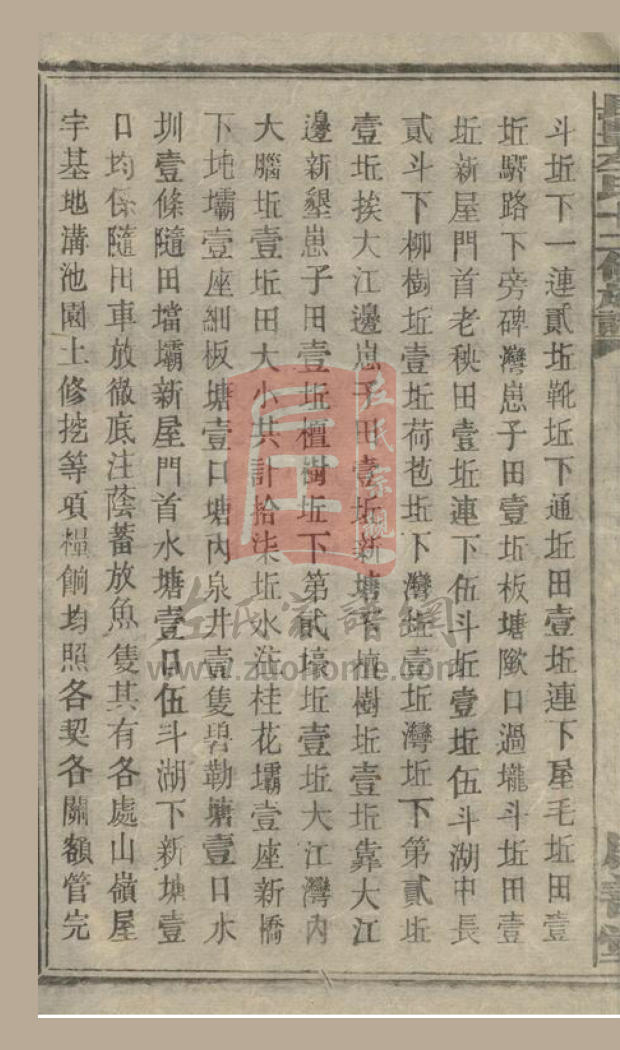 斗坵下一連貳坵靴坵下通坵田壹坵連下屋毛坵田壹
坵騑路下旁碑灣崽子田壹坵板塘歐口過壠斗坵田壹
坵新屋門首老秧田壹坵連下伍斗坵壹坵伍斗湖中長
貳斗下柳樹坵壹坵荷苞坵下灣坵壹坵灣坵下第貳坵
壹坵挨大江邊崽子田壹坵新塘下檀樹坵壹坵靠大江
邊新墾崽子田壹坵檀樹坵下第貳壕坵壹坵大江灣內
大腦坵壹坵田大小共計拾柒坵水注桂花壩壹座新橋
下坉壩壹座細板塘壹口塘內泉井壹隻碧勒塘壹口水
圳壹條隨田壋壩新屋門首水塘壹口伍斗湖下新塘壹
口均係隨田車放徹底注蔭蓄放魚隻其有各處山嶺屋
宇基地溝池園土修挖等項糧餉均照各契各關額管完
左氏宗親
左氏家譜網
www.zuohome.com